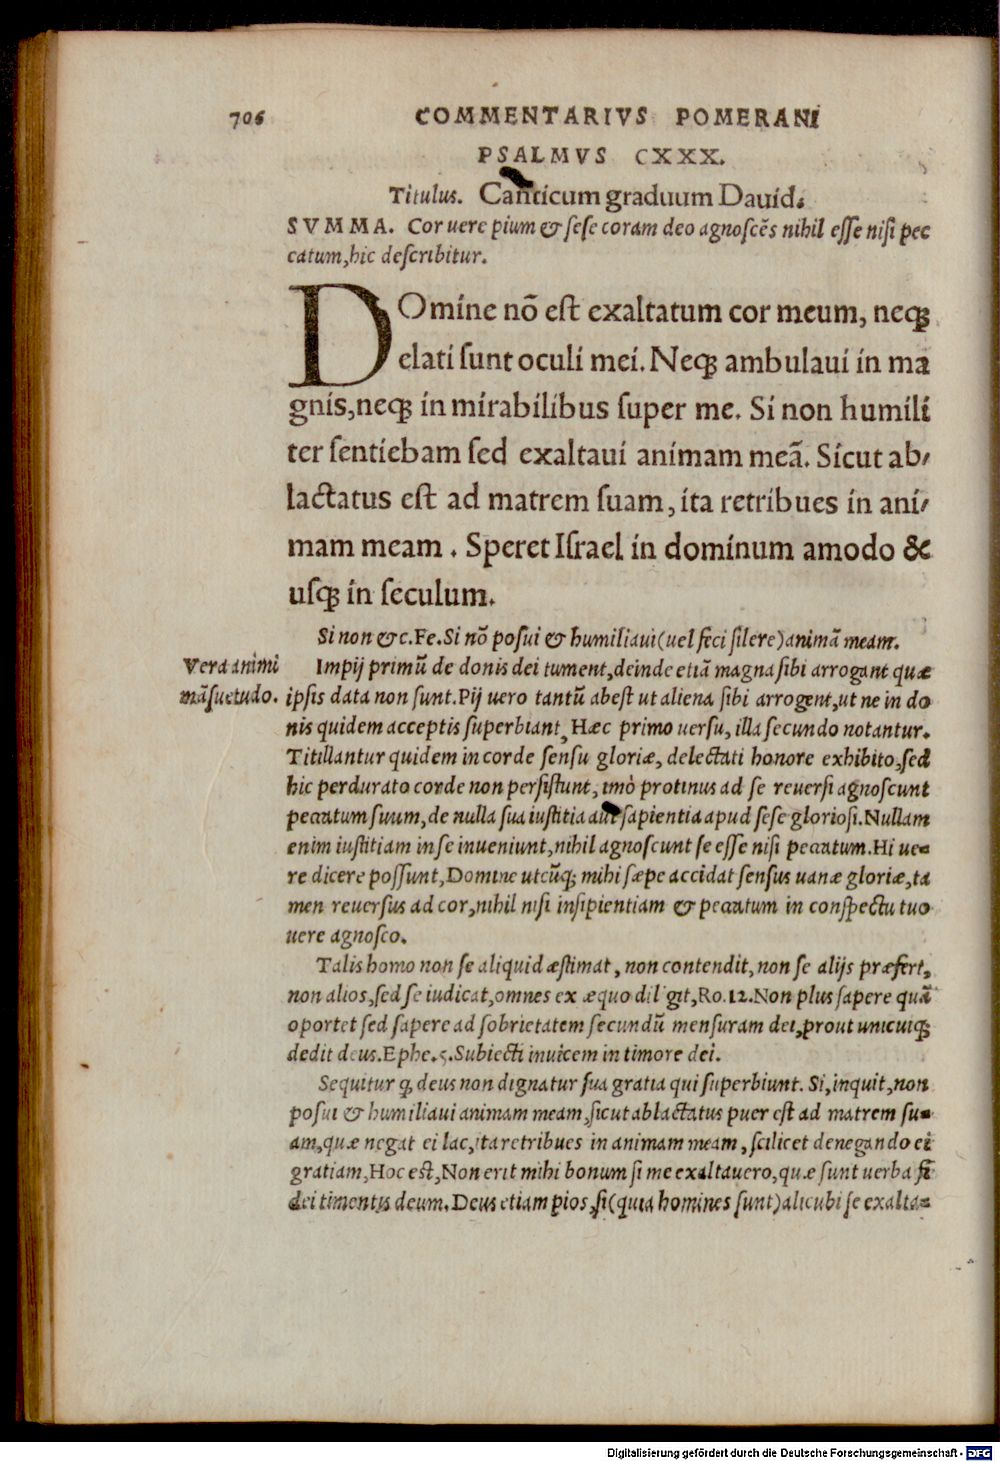 706 COMMENTARIVS POMERANI
PSALMVS CXXX.
Titulus. Canticum graduum Dauid.
SVMMA. Cor uere pium & sese coram deo agnoscēs nihil esse nisi pec
catum, hic describitur.
DOmine nō est exaltatum cor meum, neqꝫ
elati sunt oculi mei. Neqꝫ ambulaui in ma
gnis, neqꝫ in mirabilibus super me. Si non humili
ter sentiebam sed exaltaui animam meā. Sicut ab/
lactatus est ad matrem suam, ita retribues in ani/
mam meam. Speret Israel in dominum amodo &
usqꝫ in seculum.
Si non &c. Fe. Si nō posui & humiliaui (uel feci silere) animā meam.
Vera animi
māsuetudo.
Impij primū de donis dei tument, deinde etiā magna sibi arrogant quæ
ipsis data non sunt. Pij uero tantū abest ut aliena sibi arrogent, ut ne in do
nis quidem acceptis superbiant, Hæc primo uersu, illa secundo notantur.
Titillantur quidem in corde sensu gloriæ, delectati honore exhibito, sed
hic perdurato corde non persistunt, imò protinus ad se reuersi agnoscunt
peccatum suum, de nulla sua iustitia aut sapientia apud sese gloriosi. Nullam
enim iustitiam in se inueniunt, nihil agnoscunt se esse nisi peccatum. Hi ue-
re dicere possunt, Domine utcūqꝫ mihi sæpe accidat sensus uanæ gloriæ, ta
men reuersus ad cor, nihil nisi insipientiam & peccatum in conspectu tuo
uere agnosco.
Talis homo non se aliquid æstimat, non contendit, non se alijs præfert,
non alios, sed se iudicat, omnes ex æquo diligit, Ro. 12. Non plus sapere quā
oportet sed sapere ad sobrietatem secundū mensuram dei, prout unicuiqꝫ
dedit deus. Ephe. 5. Subiecti inuicem in timore dei.
Sequitur ꝙ deus non dignatur sua gratia qui superbiunt. Si, inquit, non
posui & humiliaui animam meam, sicut ablactatus puer est ad matrem su-
am, quæ negat ei lac, ita retribues in animam meam, scilicet denegando ei
gratiam, Hoc est, Non erit mihi bonum si me exaltauero, quæ sunt uerba fi
dei timentis deum. Deus etiam pios, si (quia homines sunt) alicubi se exalta-
Digitalisierung gefördert durch die Deutsche Forschungsgemeinschaft - DFG